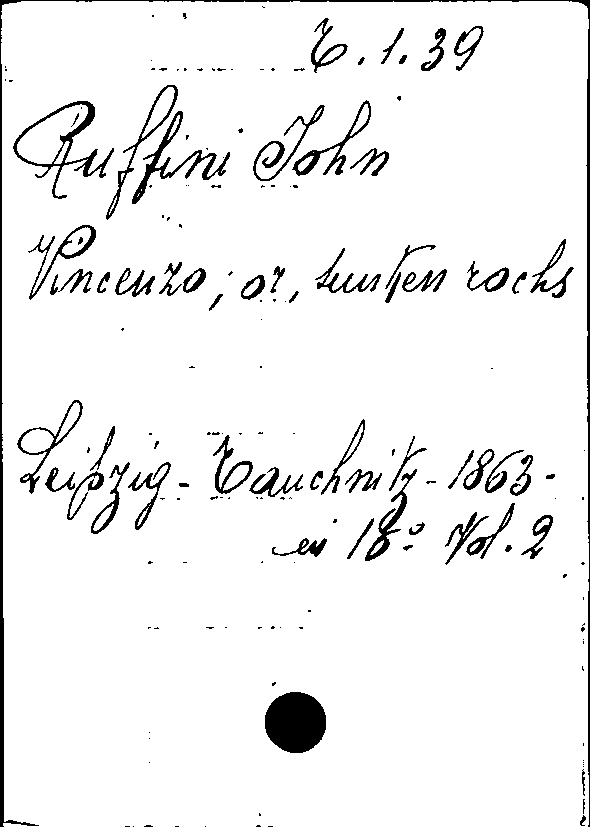 C.1.39
Ruffini John
Vincenzo; or, sunken rochs
Leipzig - Tauchnitz - 1863 -
in 18º Vol. 2